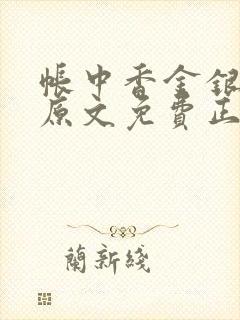 帳中香金銀
原文免費正
蘭新綫